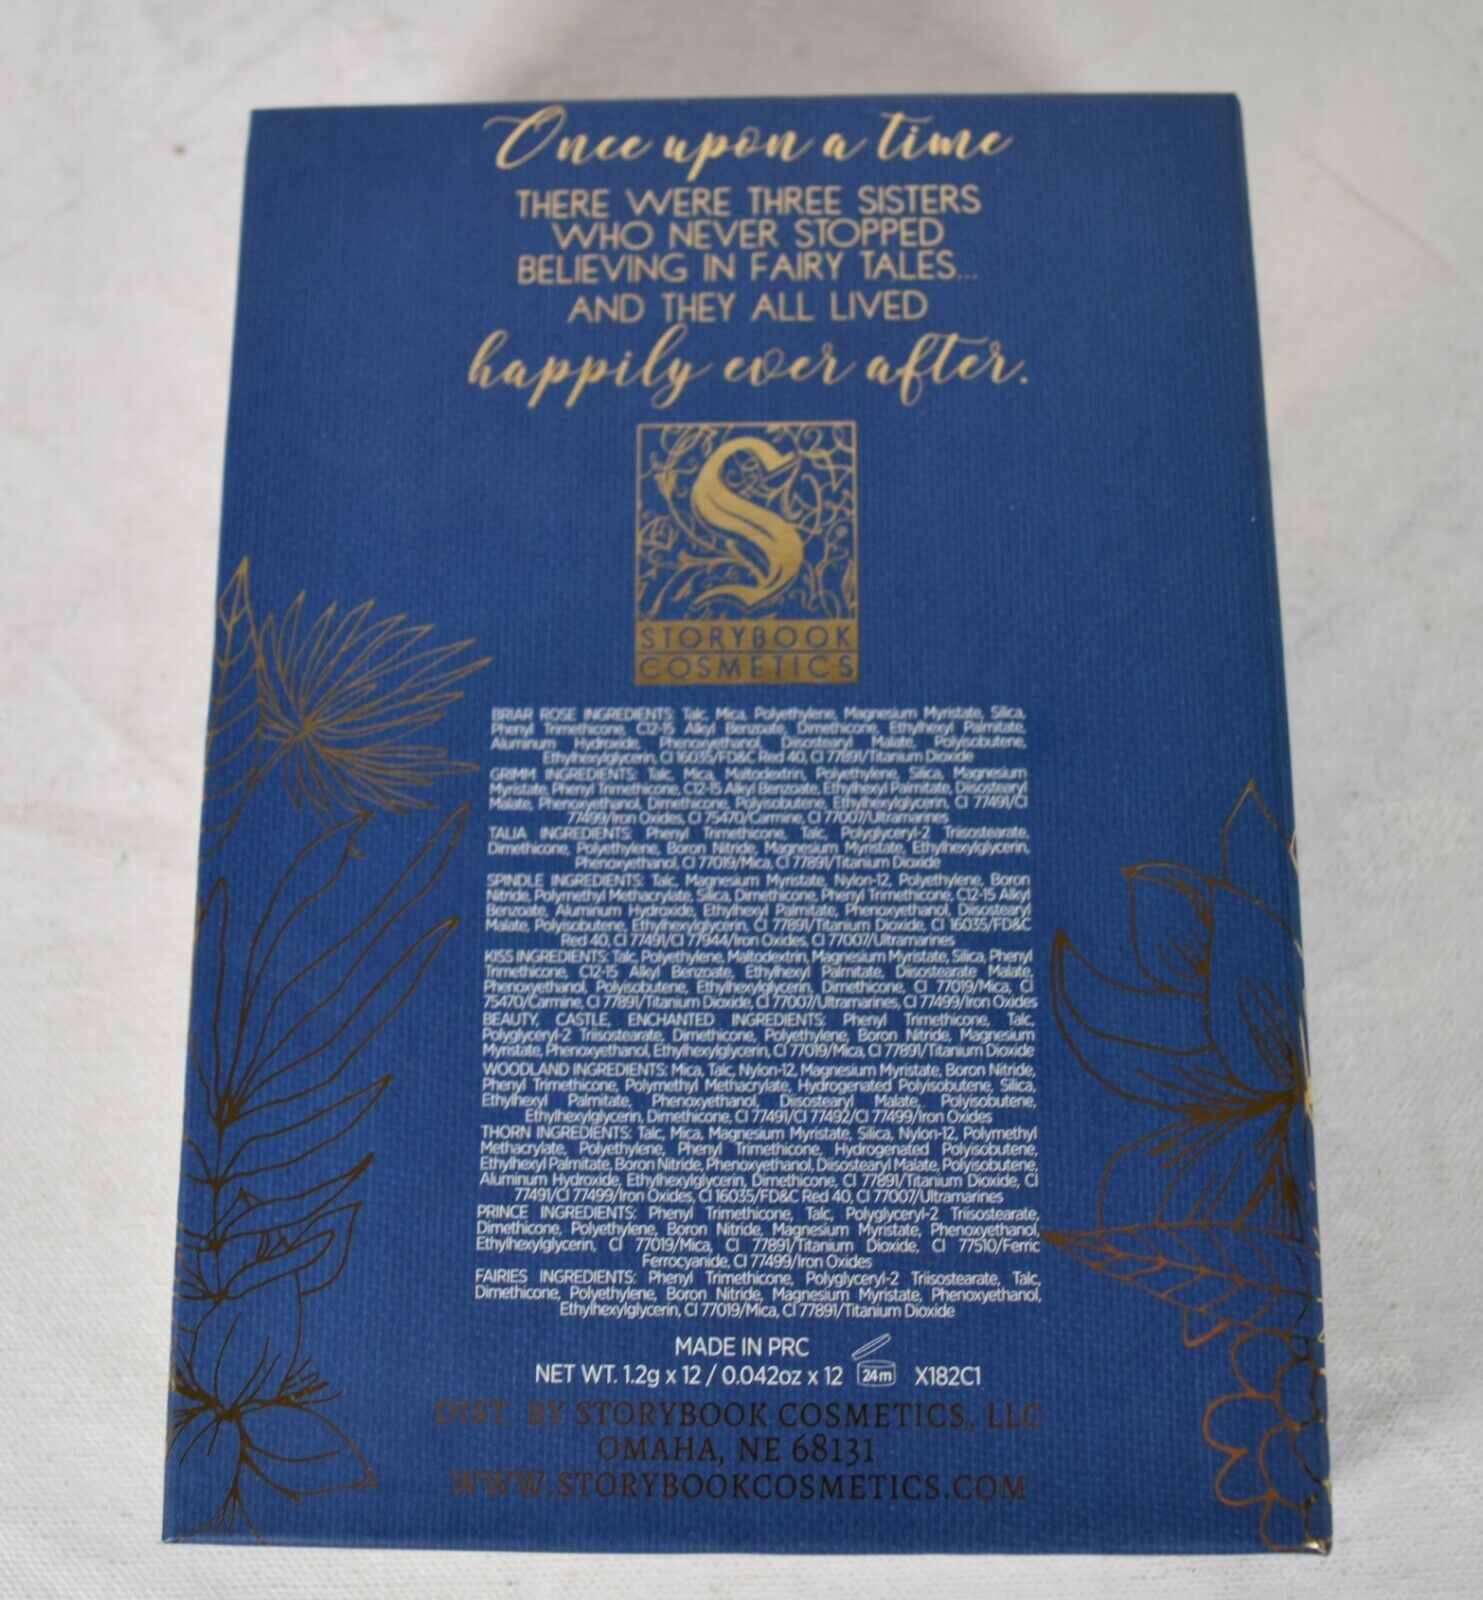 Once upon a time
THERE WERE THREE SISTERS
WHO NEVER STOPPED
BELIEVING IN FAIRY TALES...
AND THEY ALL LIVED
happily ever after.
S
STORYBOOK
COSMETICS
BRIAR ROSE INGREDIENTS: Talc, Mica, Polyethylene, Magnesium Myristate, Silica,
Phenyl Trimethicone, C12-15 Alkyl Benzoate, Dimethicone, Ethylhexyl Palmitate,
Aluminum Hydroxide, Phenoxyethanol, Diisostearyl Malate, Polyisobutene,
Ethylhexylglycerin, CI 16035/FD&C Red 40, CI 77891/Titanium Dioxide
GRIMM INGREDIENTS: Talc, Mica, Maltodextrin, Polyethylene, Silica, Magnesium
Myristate, Phenyl Trimethicone, C12-15 Alkyl Benzoate, Ethylhexyl Palmitate, Diisostearyl
Malate, Phenoxyethanol, Dimethicone, Polyisobutene, Ethylhexylglycerin, CI 77491/CI
77499/Iron Oxides, CI 75470/Carmine, CI 77007/Ultramarines
TALIA INGREDIENTS: Phenyl Trimethicone, Talc, Polyglyceryl-2 Triisostearate,
Dimethicone, Polyethylene, Boron Nitride, Magnesium Myristate, Ethylhexylglycerin,
Phenoxyethanol, CI 77019/Mica, CI 77891/Titanium Dioxide
SPINDLE INGREDIENTS: Talc, Magnesium Myristate, Nylon-12, Polyethylene, Boron
Nitride, Polymethyl Methacrylate, Silica, Dimethicone, Phenyl Trimethicone, C12-15 Alkyl
Benzoate, Aluminum Hydroxide, Ethylhexyl Palmitate, Phenoxyethanol, Diisostearyl
Malate, Polyisobutene, Ethylhexylglycerin, CI 77891/Titanium Dioxide, CI 16035/FD&C
Red 40, CI 77491/CI 77944/Iron Oxides, CI 77007/Ultramarines
KISS INGREDIENTS: Talc, Polyethylene, Maltodextrin, Magnesium Myristate, Silica, Phenyl
Trimethicone, C12-15 Alkyl Benzoate, Ethylhexyl Palmitate, Diisostearate Malate,
Phenoxyethanol, Polyisobutene, Ethylhexylglycerin, Dimethicone, CI 77019/Mica, CI
75470/Carmine, CI 77891/Titanium Dioxide, CI 77007/Ultramarines, CI 77499/Iron Oxides
BEAUTY, CASTLE, ENCHANTED INGREDIENTS: Phenyl Trimethicone, Talc,
Polyglyceryl-2 Triisostearate, Dimethicone, Polyethylene, Boron Nitride, Magnesium
Myristate, Phenoxyethanol, Ethylhexylglycerin, CI 77019/Mica, CI 77891/Titanium Dioxide
WOODLAND INGREDIENTS: Mica, Talc, Nylon-12, Magnesium Myristate, Boron Nitride,
Phenyl Trimethicone, Polymethyl Methacrylate, Hydrogenated Polyisobutene, Silica,
Ethylhexyl Palmitate, Phenoxyethanol, Diisostearyl Malate, Polyisobutene,
Ethylhexylglycerin, Dimethicone, CI 77491/CI 77492/CI 77499/Iron Oxides
THORN INGREDIENTS: Talc, Mica, Magnesium Myristate, Silica, Nylon-12, Polymethyl
Methacrylate, Polyethylene, Phenyl Trimethicone, Hydrogenated Polyisobutene,
Ethylhexyl Palmitate, Boron Nitride, Phenoxyethanol, Diisostearyl Malate, Polyisobutene,
Aluminum Hydroxide, Ethylhexylglycerin, Dimethicone, CI 77891/Titanium Dioxide, CI
77491/CI 77499/Iron Oxides, CI 16035/FD&C Red 40, CI 77007/Ultramarines
PRINCE INGREDIENTS: Phenyl Trimethicone, Talc, Polyglyceryl-2 Triisostearate,
Dimethicone, Polyethylene, Boron Nitride, Magnesium Myristate, Phenoxyethanol,
Ethylhexylglycerin, CI 77019/Mica, CI 77891/Titanium Dioxide, CI 77510/Ferric
Ferrocyanide, CI 77499/Iron Oxides
FAIRIES INGREDIENTS: Phenyl Trimethicone, Polyglyceryl-2 Triisostearate, Talc,
Dimethicone, Polyethylene, Boron Nitride, Magnesium Myristate, Phenoxyethanol,
Ethylhexylglycerin, CI 77019/Mica, CI 77891/Titanium Dioxide
MADE IN PRC
NET WT. 1.2g x 12 / 0.042oz x 12 24m X182C1
DIST. BY STORYBOOK COSMETICS, LLC
OMAHA, NE 68131
WWW.STORYBOOKCOSMETICS.COM